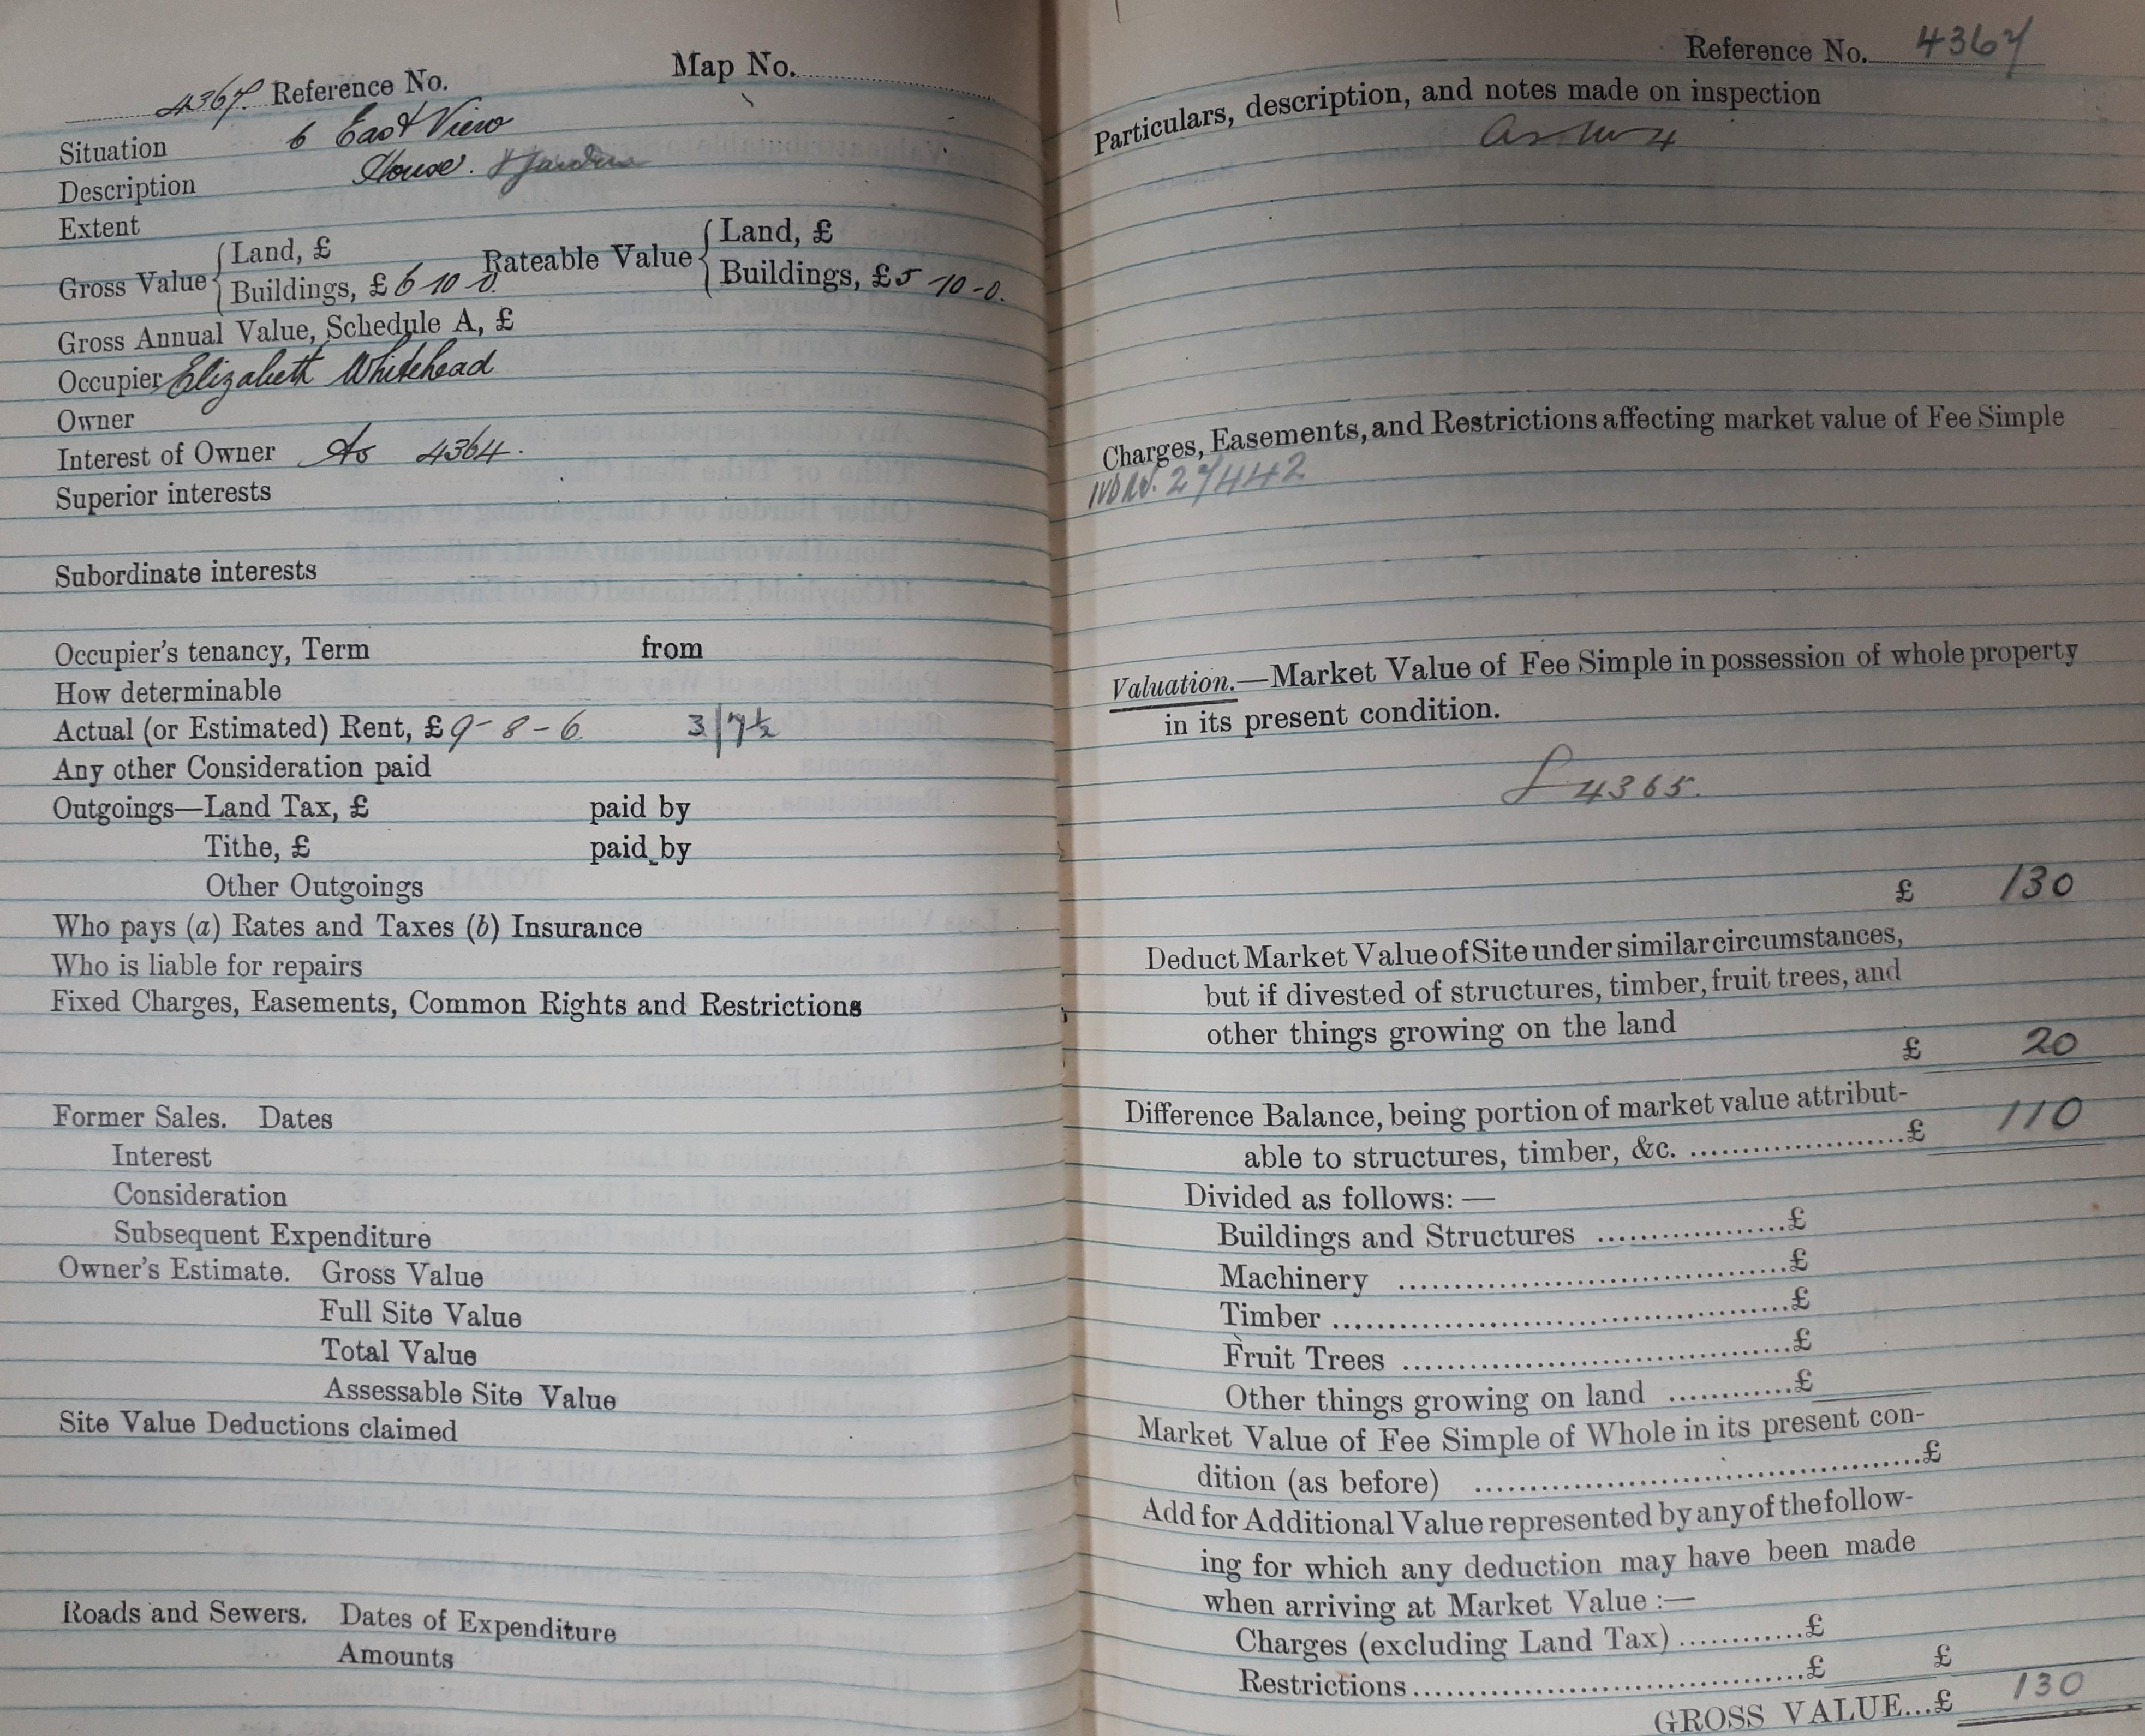 4367. Reference No. Map No.
Situation 6 East View
Description House. & Garden
Extent
Gross Value { Land, £ Rateable Value { Land, £
Buildings, £ 6 10 0. Buildings, £ 5 -10-0.
Gross Annual Value, Schedule A, £
Occupier Elizabeth Whitehead
Owner
Interest of Owner As 4364.
Superior interests
Subordinate interests
Occupier's tenancy, Term from
How determinable
Actual (or Estimated) Rent, £ 9-8-6 3/7½
Any other Consideration paid
Outgoings—Land Tax, £ paid by
Tithe, £ paid by
Other Outgoings
Who pays (a) Rates and Taxes (b) Insurance
Who is liable for repairs
Fixed Charges, Easements, Common Rights and Restrictions
Former Sales. Dates
Interest
Consideration
Subsequent Expenditure
Owner's Estimate. Gross Value
Full Site Value
Total Value
Assessable Site Value
Site Value Deductions claimed
Roads and Sewers. Dates of Expenditure
Amounts
Reference No. 4367
Particulars, description, and notes made on inspection
as 4
Charges, Easements, and Restrictions affecting market value of Fee Simple
27442
Valuation.—Market Value of Fee Simple in possession of whole property
in its present condition.
£ 4365.
£ 130
Deduct Market Value of Site under similar circumstances,
but if divested of structures, timber, fruit trees, and
other things growing on the land
£ 20
Difference Balance, being portion of market value attribut-
able to structures, timber, &c. ....................£ 110
Divided as follows: —
Buildings and Structures .................£
Machinery ...............................£
Timber ...................................£
Fruit Trees ..............................£
Other things growing on land ...........£
Market Value of Fee Simple of Whole in its present con-
dition (as before) ....................................£
Add for Additional Value represented by any of the follow-
ing for which any deduction may have been made
when arriving at Market Value :—
Charges (excluding Land Tax) ............£
Restrictions ..............................£ £
GROSS VALUE...£ 130